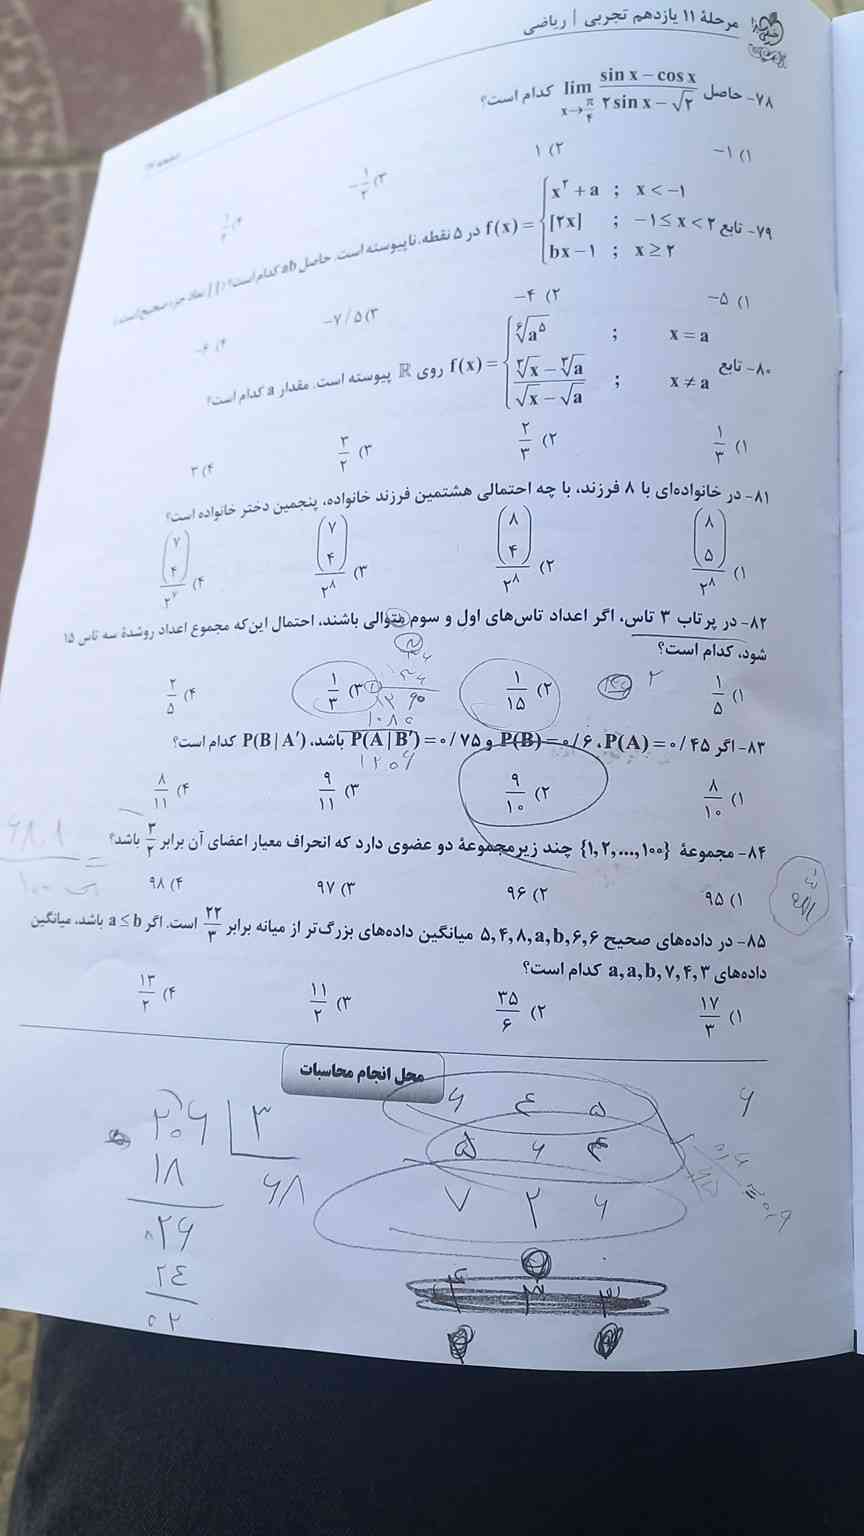 مرحلهٔ ۱۱ یازدهم تجربی | ریاضی
۷۸- حاصل lim x→π/۴ (sin x − cos x)/(۲ sin x − √۲) کدام است؟
۱) −۱
۲) ۱
۳) −۱/۲
۴) ۱/۲
۷۹- تابع f(x) = { x^۲ + a ; x < −۱
[۲x] ; −۱ ≤ x < ۲
bx − ۱ ; x ≥ ۲
در ۵ نقطه، ناپیوسته است. حاصل ab کدام است؟ ([ ] نماد جزء صحیح است.)
۱) −۵
۲) −۴
۳) −۷/۵
۴) −۶
۸۰- تابع f(x) = { ⁶√a^۵ ; x = a
(³√x − ³√a)/(√x − √a) ; x ≠ a
روی ℝ پیوسته است. مقدار a کدام است؟
۱) ۱/۳
۲) ۲/۳
۳) ۳/۲
۴) ۳
۸۱- در خانواده‌ای با ۸ فرزند، با چه احتمالی هشتمین فرزند خانواده، پنجمین دختر خانواده است؟
۱) (۸ ۵)/۲^۸
۲) (۸ ۴)/۲^۸
۳) (۷ ۴)/۲^۸
۴) (۷ ۴)/۲^۷
۸۲- در پرتاب ۳ تاس، اگر اعداد تاس‌های اول و سوم متوالی باشند، احتمال این‌که مجموع اعداد روشدهٔ سه تاس ۱۵
شود، کدام است؟
۱) ۱/۵
۲) ۱/۱۵
۳) ۱/۳
۴) ۲/۵
۸۳- اگر P(A) = ۰/۴۵، P(B) = ۰/۶ و P(A | B′) = ۰/۷۵ باشد، P(B | A′) کدام است؟
۱) ۸/۱۰
۲) ۹/۱۰
۳) ۹/۱۱
۴) ۸/۱۱
۸۴- مجموعهٔ {۱,۲,...,۱۰۰} چند زیرمجموعهٔ دو عضوی دارد که انحراف معیار اعضای آن برابر ۳/۲ باشد؟
۱) ۹۵
۲) ۹۶
۳) ۹۷
۴) ۹۸
۸۵- در داده‌های صحیح ۵,۴,۸,a,b,۶,۶ میانگین داده‌های بزرگ‌تر از میانه برابر ۲۲/۳ است. اگر a ≤ b باشد، میانگین
داده‌های a,a,b,۷,۴,۳ کدام است؟
۱) ۱۷/۳
۲) ۳۵/۶
۳) ۱۱/۲
۴) ۱۳/۲
محل انجام محاسبات
۶ ۴ ۵
۵ ۶ ۴
۷ ۲ ۶
۶
۲۰۶ | ۳
۱۸
۶۸
۲۶
۲۴
۰۲